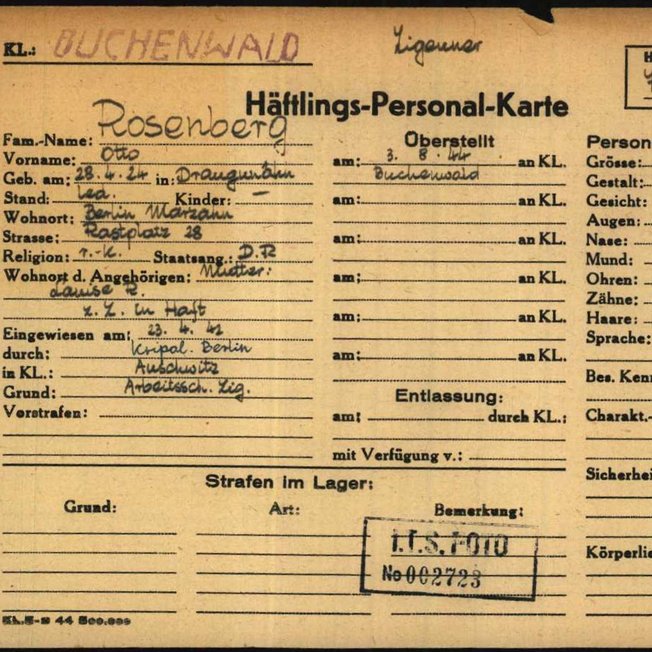 KL.: BUCHENWALD
Zigeuner
Häftlings-Personal-Karte
Fam.-Name: Rosenberg
Vorname: Otto
Geb. am: 28.4.24 in:
Stand: led. Kinder: —
Wohnort: Berlin Marzahn
Strasse: Rastplatz 28
Religion: r.-k. Staatsang.: D.R
Wohnort d. Angehörigen: Mutter:
Louise R.
z. Z. in Haft
Eingewiesen am: 23. 4. 42
durch: Kripol. Berlin
in KL.: Auschwitz
Grund: Arbeitssch. Zig.
Vorstrafen:
Überstellt
am: 3. 8. 44 an KL.
Buchenwald
am: an KL.
am: an KL.
am: an KL.
am: an KL.
am: an KL.
Entlassung:
am: durch KL.:
mit Verfügung v.:
Person
Grösse:
Gestalt:
Gesicht:
Augen:
Nase:
Mund:
Ohren:
Zähne:
Haare:
Sprache:
Bes. Kenn
Charakt.-
Sicherhei
Körperlic
Strafen im Lager:
Grund: Art: Bemerkung:
I.T.S. FOTO
No 002723
44 500.000